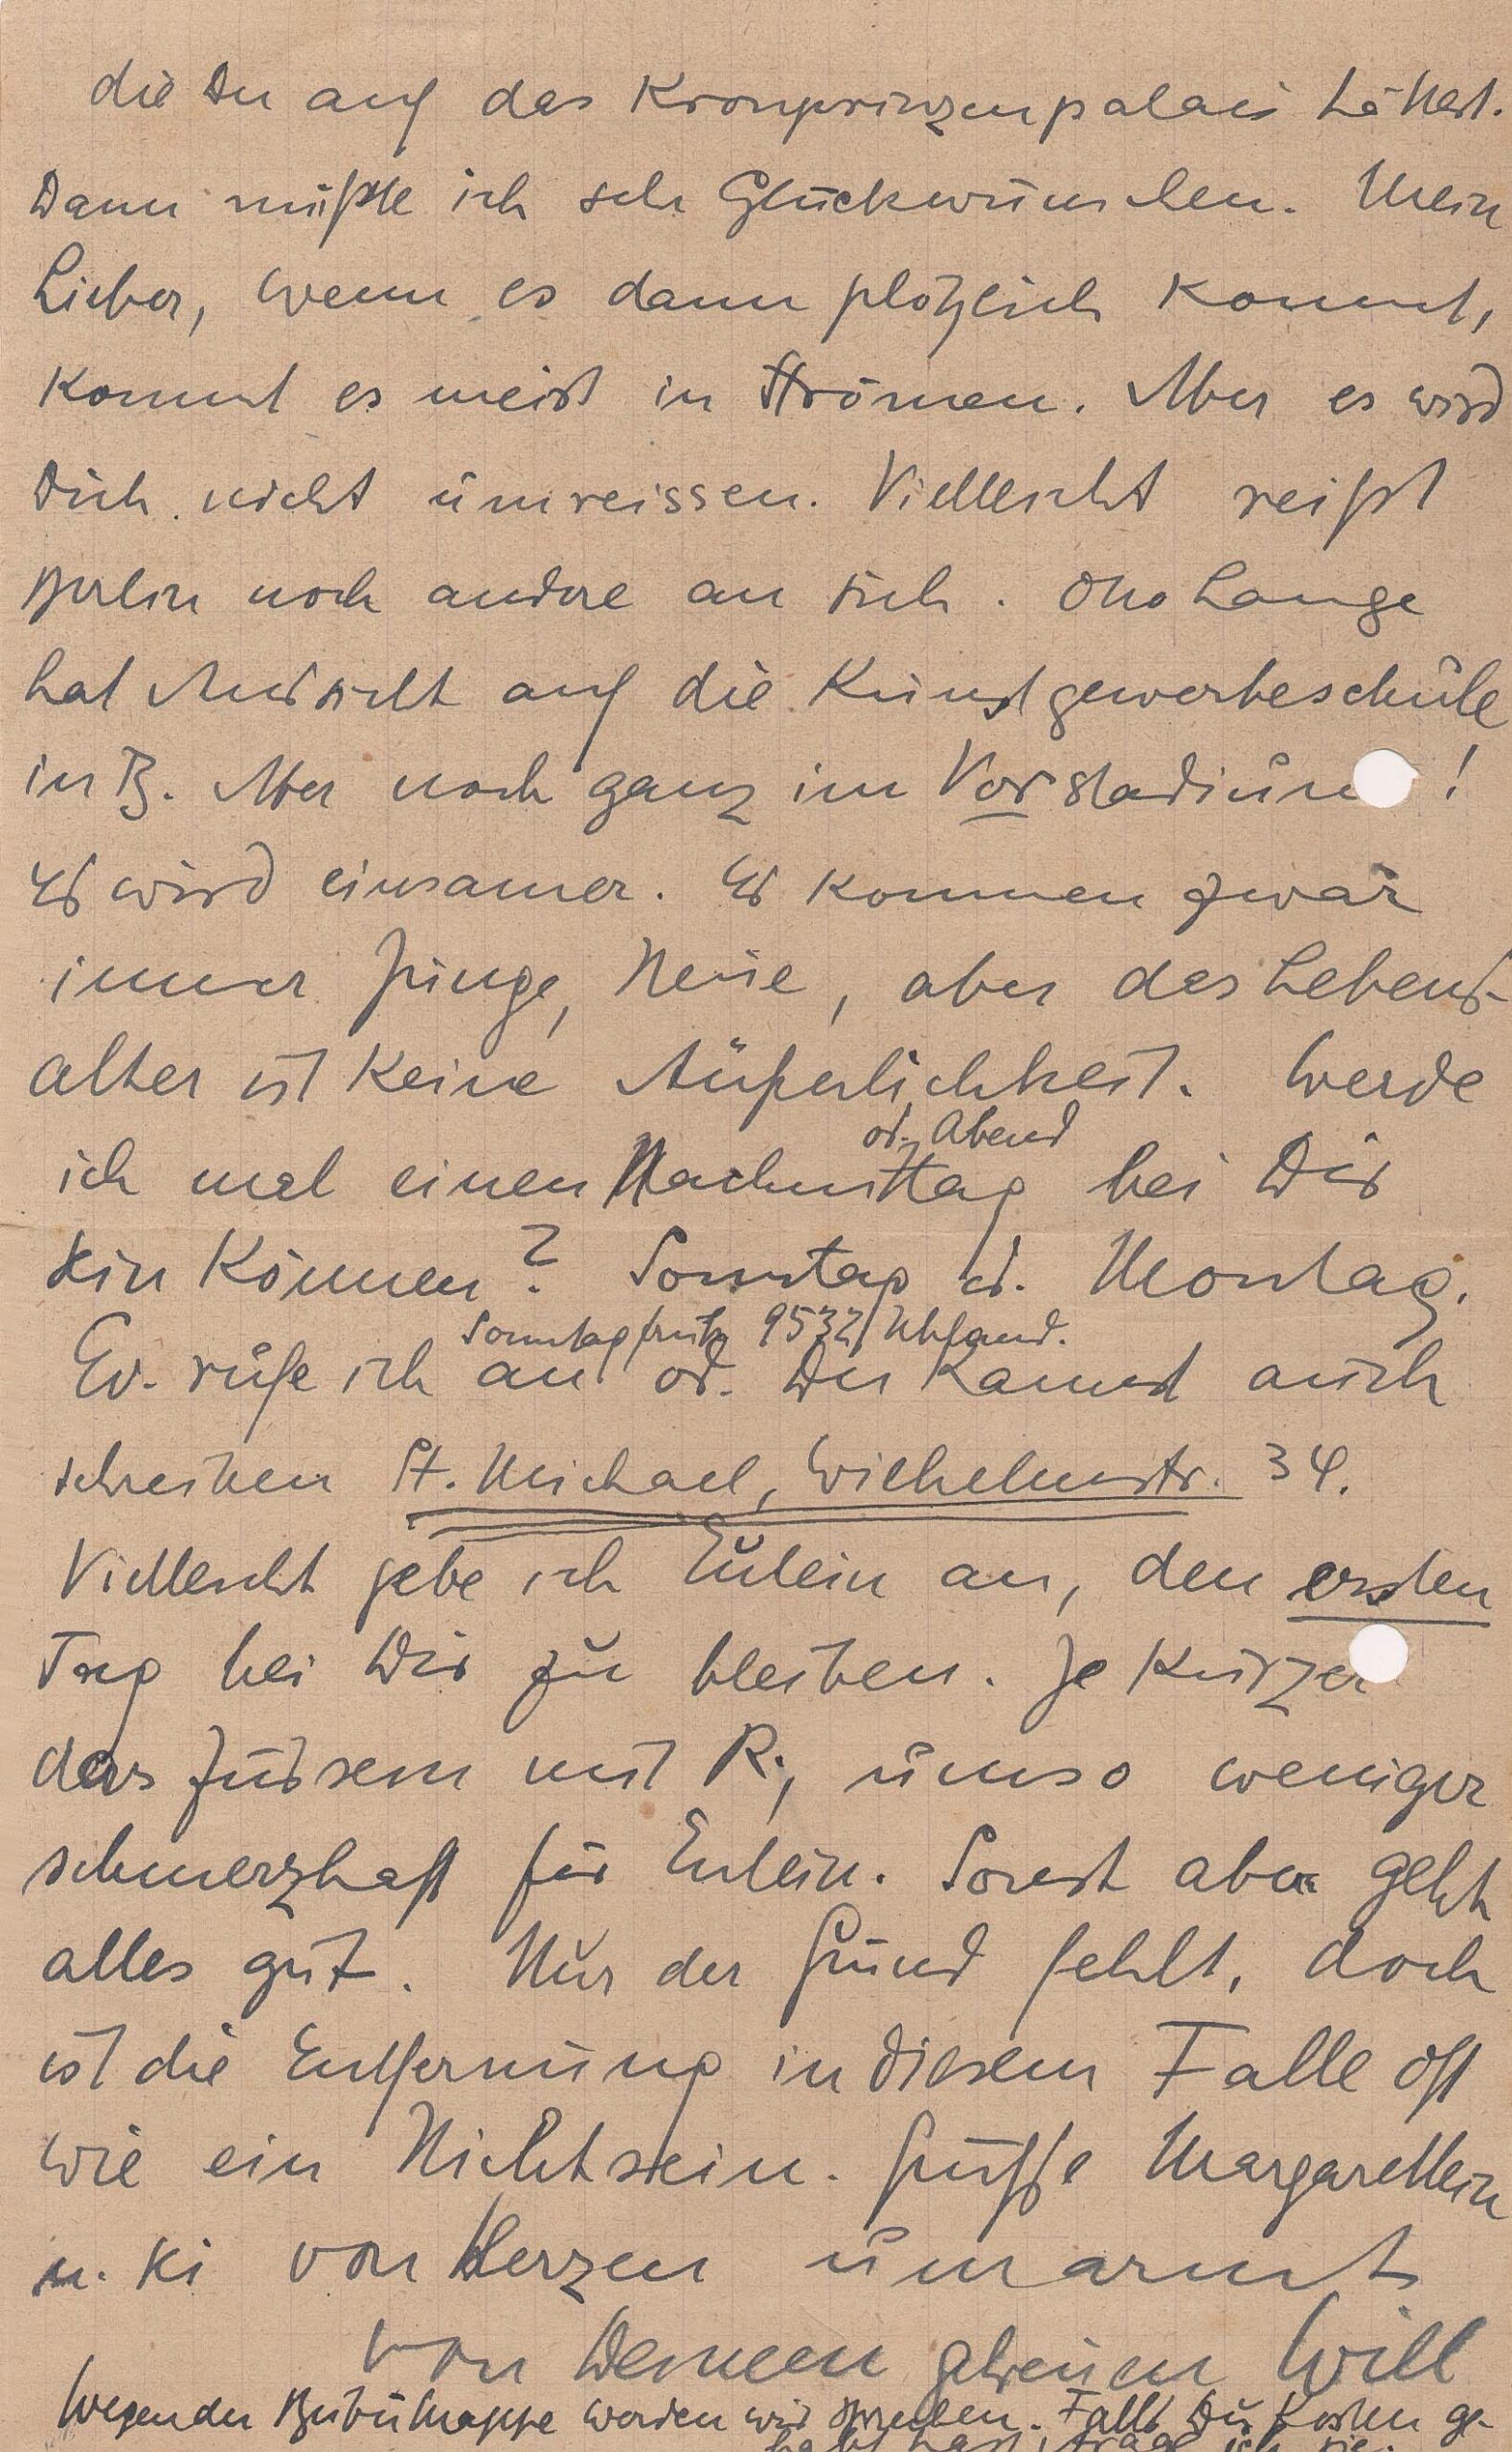 die Du auf das Kronprinzenpalais hättest.
Dann müßte ich sehr Glückwünschen. Mein
Lieber, wenn es dann plötzlich kommt,
kommt es meist in Strömen. Aber es wird
Dich nicht umreissen. Vielleicht reißt
Berlin noch andere an sich. Otto Lange
hat Aussicht auf die Kunstgewerbeschule
in B. Aber noch ganz im Vorstadium!
Es wird einsamer. Es kommen zwar
immer Junge, Neue, aber das Lebens-
alter ist keine Äußerlichkeit. Werde
od. Abend
ich mal einen Nachmittag bei Dir
sein können? Sonntag od. Montag.
Sonntag früh 9532 Uhland.
Ev. rufe ich an od. Du kannst auch
schreiben St. Michael, Wilhelmstr. 34.
Vielleicht gebe ich Eulein an, den ersten
Tag bei Dir zu bleiben. Je kürzer
das Zussein mit R., umso weniger
schmerzhaft für Eulein. Sonst aber geht
alles gut. Nur der Freund fehlt, doch
ist die Entfernung in diesem Falle oft
wie ein Nichtsein. Grüsse Margaretlein
u. Ki von Herzen umarmt
von Deinem getreuen Will
Wegen der Mappe werden wir sprechen. Falls Du Kosten ge-
habt hast, trage ich sie.